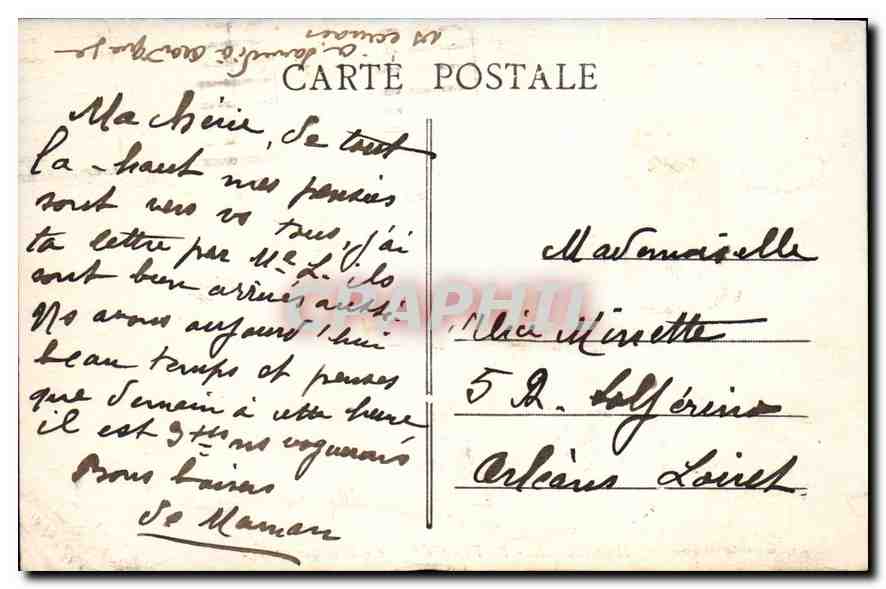 CARTE POSTALE
Ma chérie, de tout
là-haut mes pensées
sont vers vs tous, j'ai
ta lettre par Me L. ils
sont bien arrivés aussi.
Ns avons aujourd'hui
beau temps et penses
que demain à cette heure
il est 9 hs ns voguerons
Bons baisers
de Maman
Mademoiselle
Alice Minette
5 R. Solférino
Orléans Loiret
CARPHU